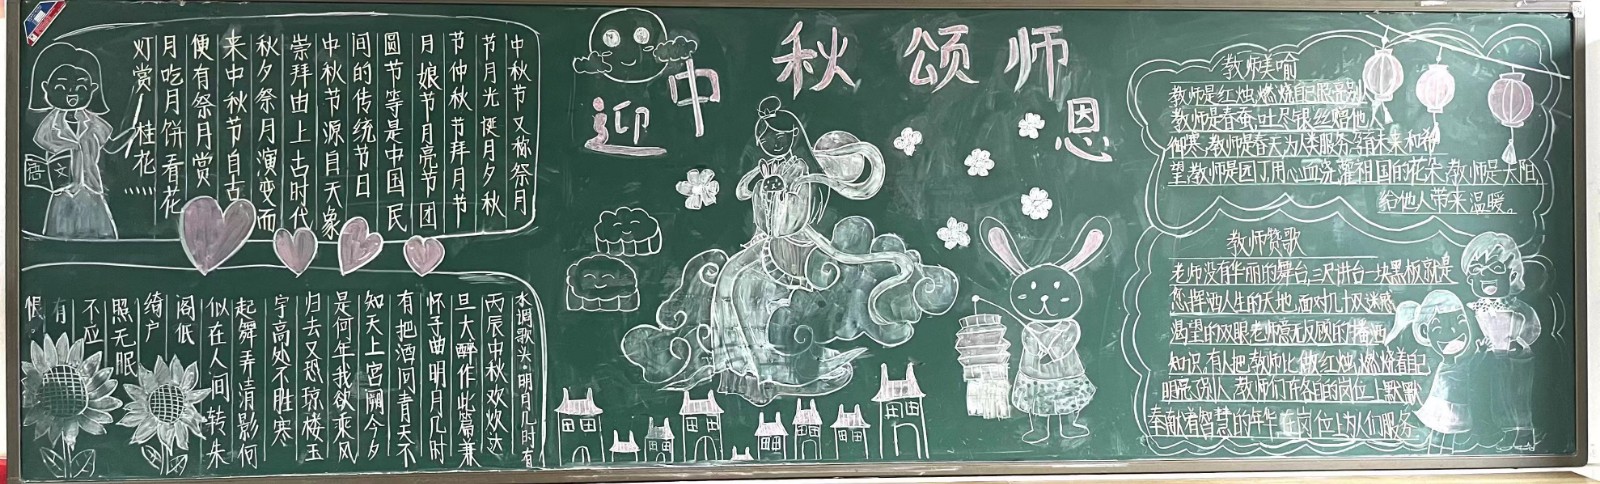 迎中秋颂师恩
中秋节又称祭月
节月光诞月夕秋
节仲秋节拜月节
月娘节月亮节团
圆节等是中国民
间的传统节日
中秋节源自天象
崇拜由上古时代
秋夕祭月演变而
来中秋节自古
便有祭月赏
月吃月饼看花
灯赏桂花……
语文
水调歌头·明月几时有
丙辰中秋欢饮达
旦大醉作此篇兼
怀子由明月几时
有把酒问青天不
知天上宫阙今夕
是何年我欲乘风
归去又恐琼楼玉
宇高处不胜寒
起舞弄清影何
似在人间转朱
阁低
绮户
照无眠
不应
有
恨。
教师美喻
教师是红烛,燃烧自己照亮别
教师是春蚕,吐尽银丝赠他人
御寒,教师是春天,为人类服务,孕育未来和希
望,教师是园丁,用心血浇灌祖国的花朵,教师是太阳,
给他人带来温暖。
教师赞歌
老师没有华丽的舞台,三尺讲台一块黑板就是
您挥洒人生的天地,面对几十双迷惑
渴望的双眼老师毫无反顾的播洒
知识,有人把教师比做红烛,燃烧着自己
明亮别人,教师们在各自的岗位上默默
奉献着智慧的年华,在岗位上为人们服务